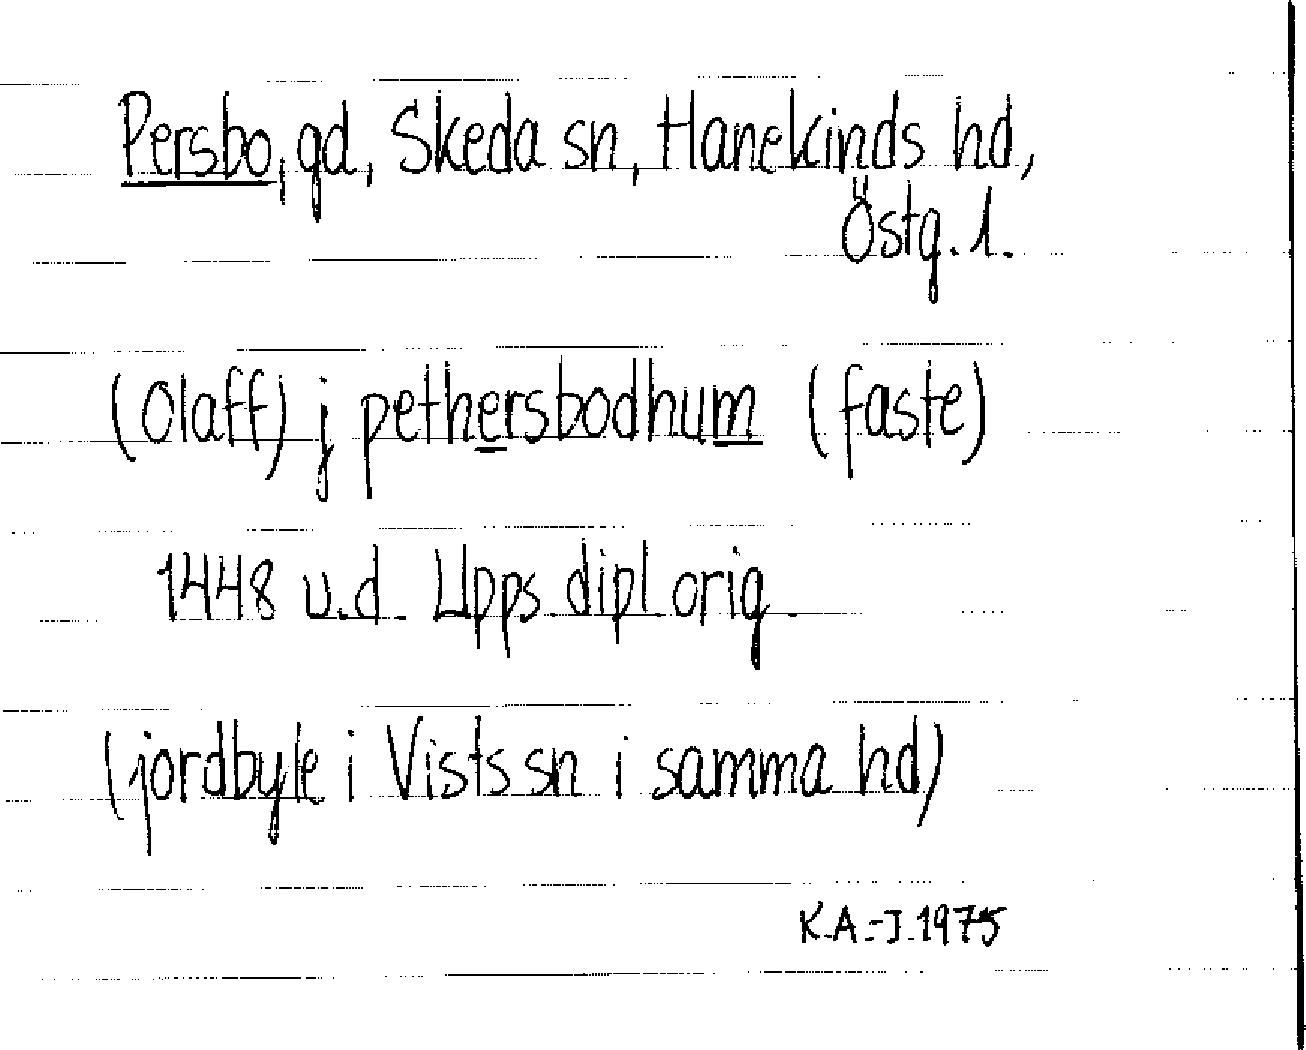 Persbo, gd, Skeda sn, Hanekinds hd,
Östg. l.
(Olaff) j pethersbodhum (faste)
1448 u.d. Upps. dipl. orig.
(jordbyte i Vists sn i samma hd)
K.A.-J. 1975